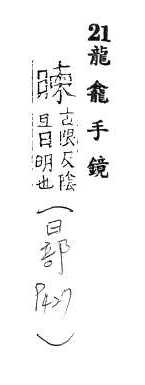 21龍龕手鏡
暕 古限反陰
旦日明也
(日部
P427)